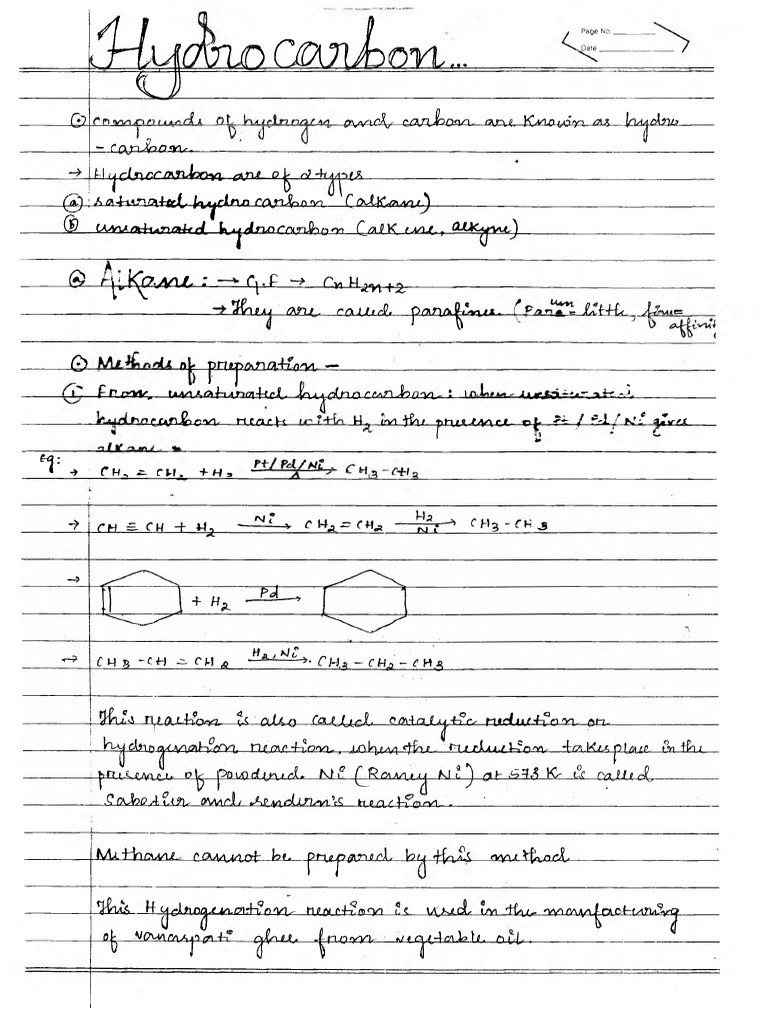 Hydrocarbon...
Page No.
Date
⊙ compounds of hydrogen and carbon are known as hydro
- carbon.
→ Hydrocarbon are of 2 types
ⓐ saturated hydrocarbon (alkane)
ⓑ unsaturated hydrocarbon (alkene, alkyne)
ⓐ Alkane : → G.F → CnH2n+2
→ They are called parafines. (Parum = little, fine= affinit
⊙ Methods of preparation -
① From unsaturated hydrocarbon : when unsaturated
hydrocarbon reacts with H2 in the presence of Pt / Pd / Ni gives
alkane
Eg:
→ CH2 = CH2 + H2 Pt/Pd/Ni Δ → CH3-CH3
→ CH ≡ CH + H2 Ni → CH2 = CH2 H2 Ni → CH3-CH3
→ + H2 Pd →
→ CH3 - CH = CH2 H2, Ni → CH3 - CH2 - CH3
This reaction is also called catalytic reduction or
hydrogenation reaction. when the reduction takes place in the
presence of powdered Ni (Raney Ni) at 573 K is called
Sabatier and sendern's reaction.
Methane cannot be prepared by this method
This Hydrogenation reaction is used in the manfacturing
of vanaspati ghee from vegetable oil.